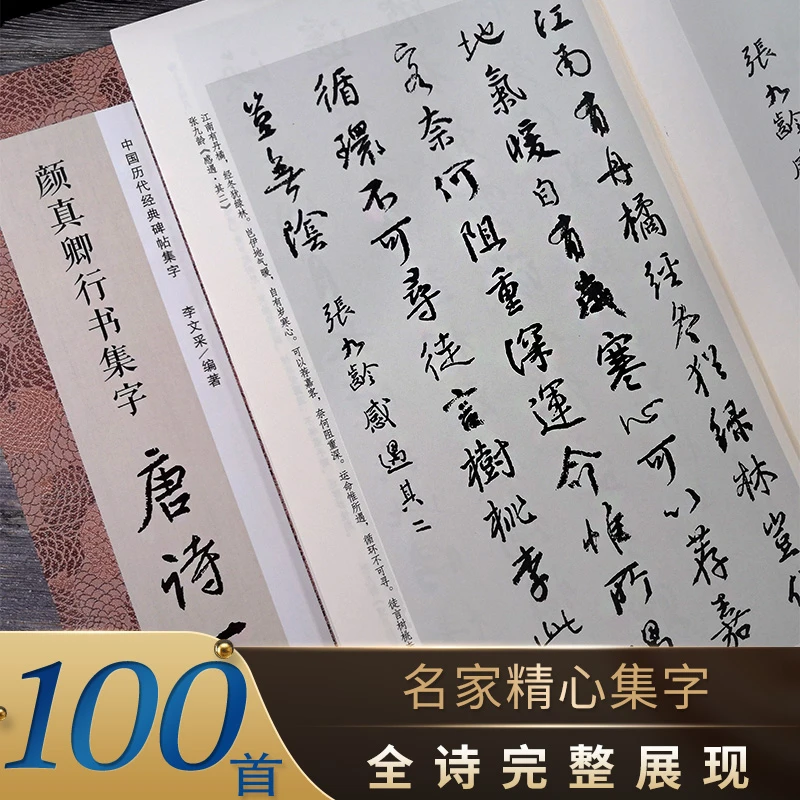 張九齡感
江南有丹橘經冬猶綠林豈
地氣暖自有歲寒心可以荐嘉
客奈何阻重深運命惟所遇
循環不可尋徒言樹桃李此
豈無陰
張九齡感遇其二
江南有丹橘,经冬犹绿林。岂伊地气暖,自有岁寒心。可以荐嘉客,奈何阻重深。运命惟所遇,循环不可寻。徒言树桃
张九龄《感遇·其二》
中国历代经典碑帖集字
李文采/编著
颜真卿行书集字
唐诗
100首
名家精心集字
全诗完整展现